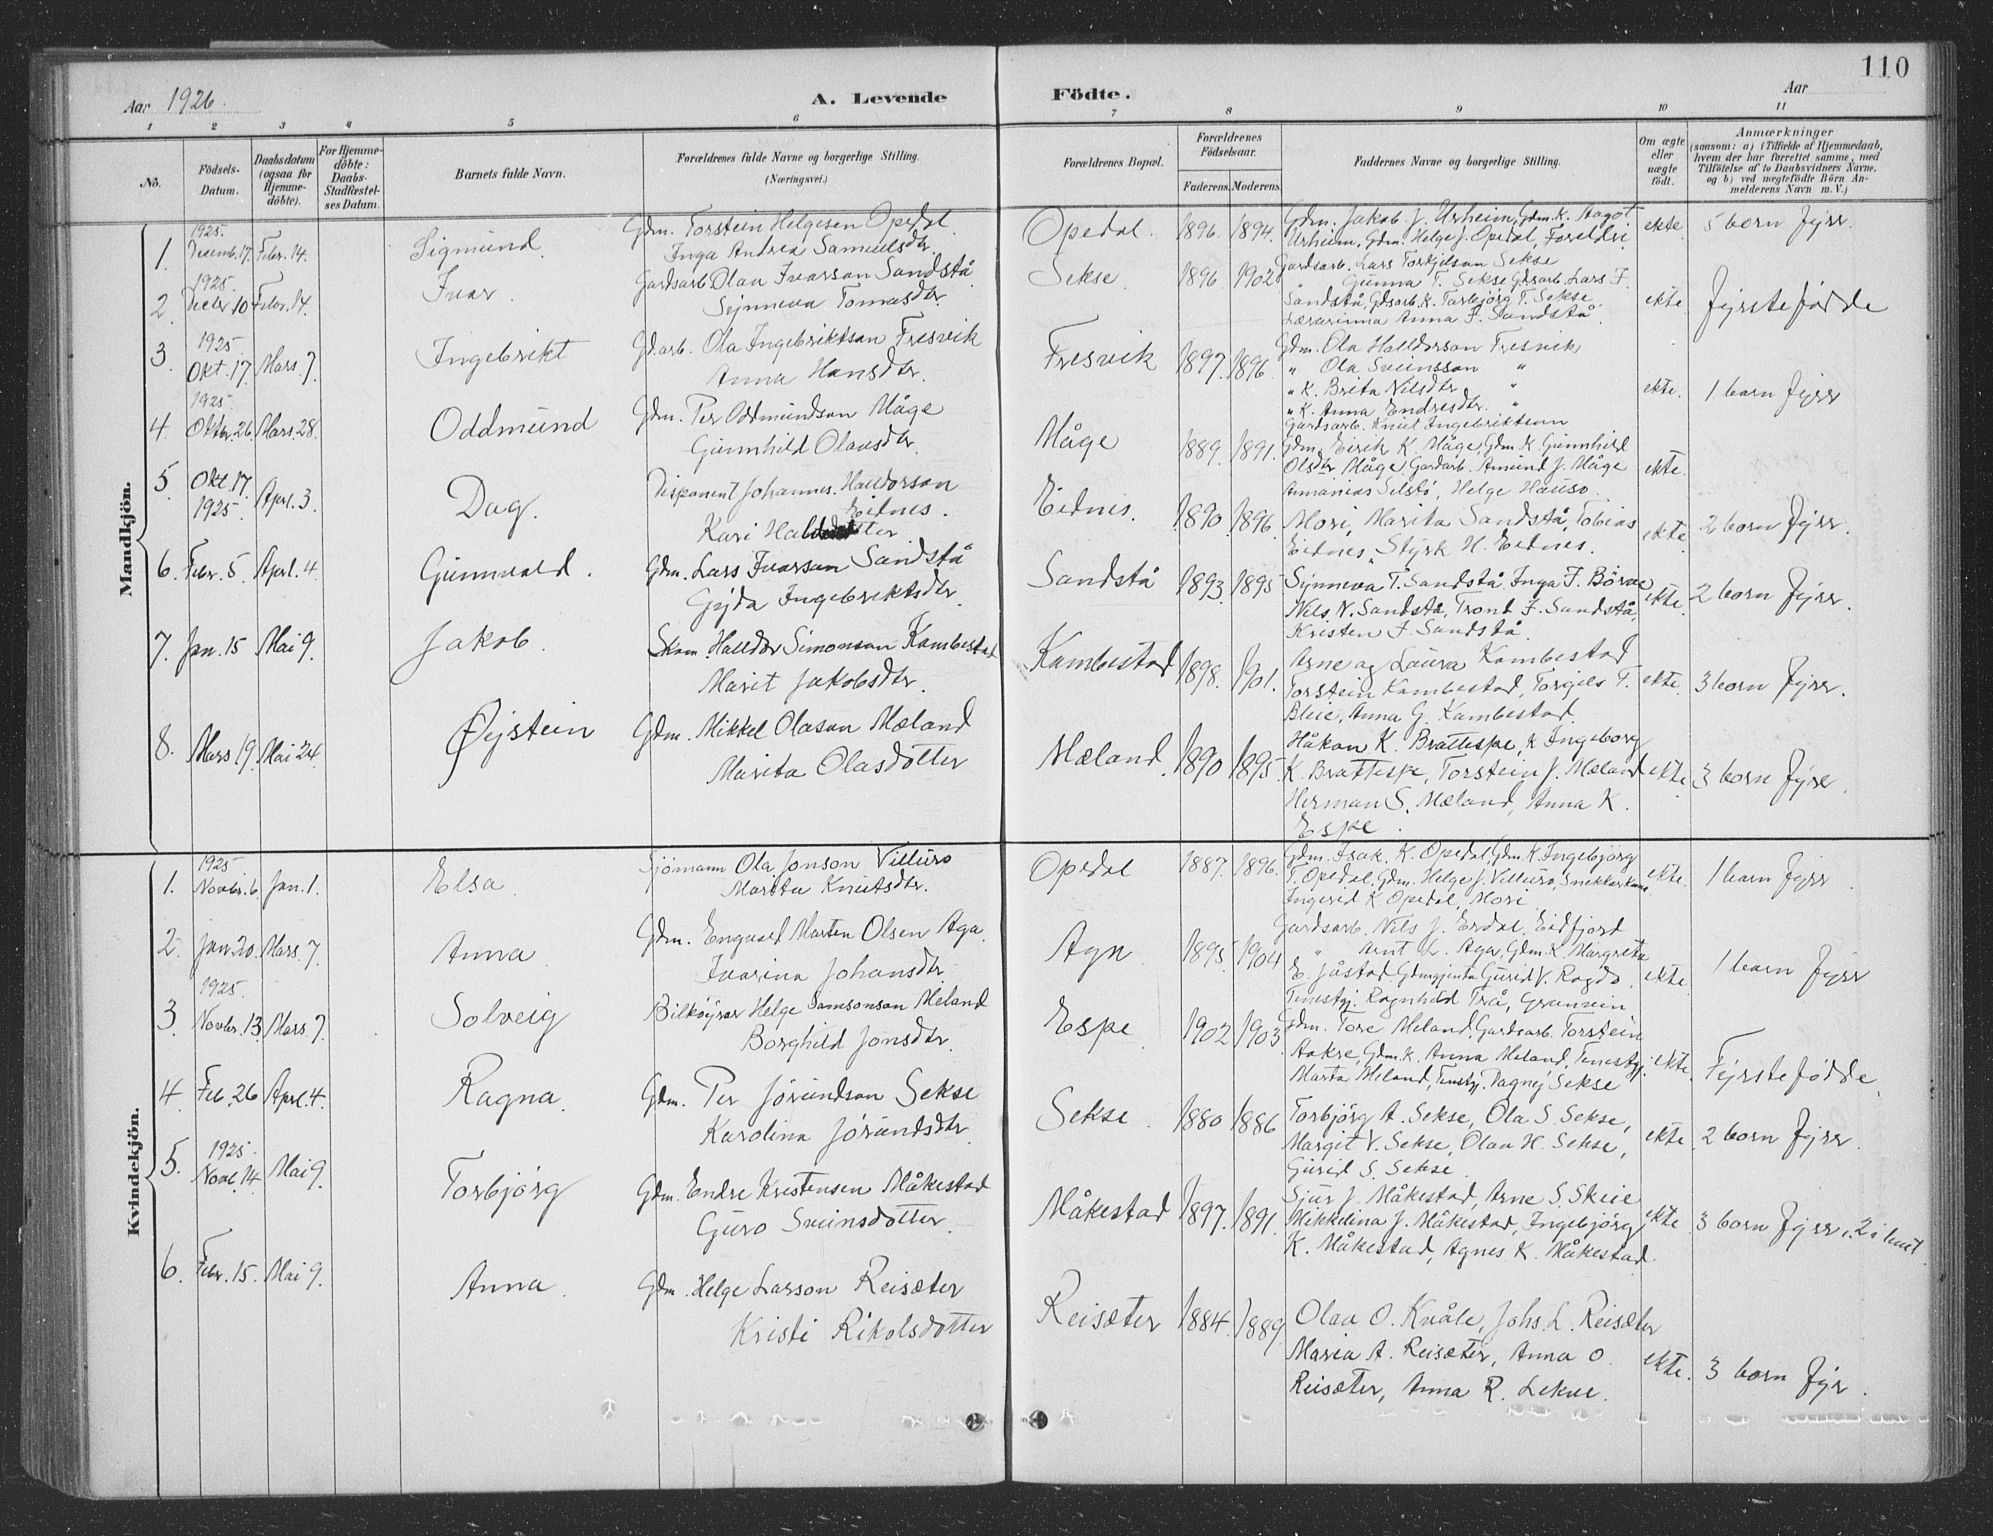 110
Aar 1926. A. Levende Födte. Aar
1 2 3 4 5 6 7 8 9 10 11
No. Födsels-Datum. Daabsdatum (ogsaa for Hjemme-döbte). For Hjemme-döbte: Daabs-Stadfæstel-ses Datum. Barnets fulde Navn. Forældrenes fulde Navne og borgerlige Stilling. (Næringsvei.) Forældrenes Bopæl. Forældrenes Födselsaar. Faderens. Moderens. Faddernes Navne og borgerlige Stilling. Om ægte eller uægte födt. Anmærkninger (saasom: a) i Tilfælde af Hjemmedaab, hvem der har forrettet samme, med Tilföielse af to Daabsvidners Navne, og b) ved uægtefödte Börn An-melderens Navn m. V.)
Mandkjön.
1. 1925. Desemb. 17. Febr. 14. Sigmund. Gdm. Torstein Helgesen Opedal.
Inga Andrea Samuelsdtr.
Opedal. 1896. 1894. Gdm. Jakob J. Urheim, Gdm. K. Aagot
Urheim, Gdm. Helge J. Opedal, Foreldri
ekte. 5 born fyrr.
2. 1925. Decbr 10 Febr. 14. Ivar. Gardsarb. Olav Ivarson Sandstå
Synneva Tomasdtr.
Sekse. 1896. 1902 Gardsarb. Lars Torkjelson Sekse
" Gunna T. Sekse Gdsarb. Lars I.
Sandstå, Gdsarb. K. Torbjörg T. Sekse
Lærarinna Anna I. Sandstå.
ekte. Fyrstefødde
3. 1925 Okt. 17. Mars 7. Ingebrikt Gdarb. Ola Ingebriktson Fresvik
Anna Hansdtr.
Fresvik 1897. 1896. Gdm. Ola Halldorson Fresvik,
" Ola Sveinsson "
" K. Brita Nilsdtr "
" K. Anna Endresdtr. "
Gardsarb. Knut Ingebriktson
ekte. 1 born fyrr
4. 1925 Oktbr. 26. Mars. 28. Oddmund Gdm. Per Oddmundson Måge
Gunnhild Olavsdtr.
Måge 1889. 1891. Gdm. Eirik K. Måge, Gdm. K Gunnhild
Olsdtr Måge Gardarb. Amund J. Måge
Ananias Selstö, Helge Hauso.
ekte.
5. Okt. 17. 1925. Aprl. 3 Dag. Disponent Johannes. Halldorson
Eidnes.
Kari
Eidnes. 1890. 1896. Mori, Marita Sandstå, Tobias
Eidnes, Styrk H. Eidnes.
ekte. 2 born fyrr.
6. Febr. 5. Aprl. 4. Gunnvald. Gdm. Lars Ivarson Sandstå
Gyda Ingebriktsdtr.
Sandstå 1893. 1895 Synneva T. Sandstå, Inga I. Börve
Nils N. Sandstå, Trond I. Sandstå,
Kristen I. Sandstå.
ekte. 2 born fyrr.
7. Jan. 15 Mai 9. Jakob. Skom. Halldor Simonson Kambestad
Marit Jakobsdtr.
Kambestad 1898. 1901. Arne og Laura Kambestad
Torstein Kambestad, Torgils T.
Bleie, Anna G. Kambestad.
ekte. 3 born fyrr.
8. Mars 19. Mai 24. Øystein Gdm. Mikkel Olason Mæland
Marita Olasdotter
Mæland. 1890. 1895. Håkon K. Brattespe, K Ingeborg
K. Brattespe, Torstein J. Mæland
Herman S. Mæland, Anna K.
Espe.
ekte. 3 born fyrr.
Kvindekjön.
1. 1925 Novbr. 6 Jan. 1. Elsa. Sjömann Ola Jonson Villuro
Marita Knutsdtr.
Opedal 1887. 1896. Gdm. Isak. K. Opedal, Gdm. K. Ingebjörg
T. Opedal, Gdm. Helge J. Villuro,
Ingerid K Opedal, Mori
ekte. 1 barn fyrr.
2. Jan. 20. Mars. 7. Anna. Gdm. Engvald Marten Olsen Aga.
Ivarina Johansdtr
Aga. 1895 1904 Gardsarb. Nils J. Erdal, Eidfjord
" Arnt L. Aga, Gdm. K. Margreta
E. Jåstad. Gdmgjenta Gurid V. Rogde.
Tenestgj. Ragnhild Trå, Granvin
ekte. 1 barn fyrr
3. 1925. Novbr. 13. Mars 7. Solveig Bilköyrar Helge Samsonson Meland
Borghild Jonsdtr.
Espe. 1902 1903 Gdm. Tore Meland, Gardsarb. Torstein
Aakre, Gdm. K. Anna Meland, Tenestgj.
Marta Meland, Tenstgj. Dagny Sekse
ekte. Fyrstefødde.
4. Feb. 26 Aprl. 4. Ragna. Gdm. Per Jørundson Sekse
Karolina Jórundsdtr.
Sekse. 1880 1886 Torbjörg A. Sekse, Ola S Sekse,
Margit V. Sekse, Olav H. Sekse,
Gurid S. Sekse.
ekte. 2 born fyrr.
5. 1925. Novl. 14. Mai 9. Torbjörg Gdm. Endre Kristensen Måkestad
Guro Sveinsdotter.
Måkestad 1897. 1891. Sjur J. Måkestad, Arne S. Skeie
Mikkelina J. Måkestad, Ingebjörg
K. Måkestad, Agnes K. Måkestad.
ekte. 3 born fyrr,
6. Febr. 15. Mai 9. Anna. Gdm. Helge Larson Reisæter
Kristi Rikolsdotter
Reisæter 1884. 1889. Olav O. Kvåle, Johs. L. Reisæter
Maria A. Reisæter, Anna O.
Reisæter, Anna R. Lekve.
ekte. 3 born fyr.